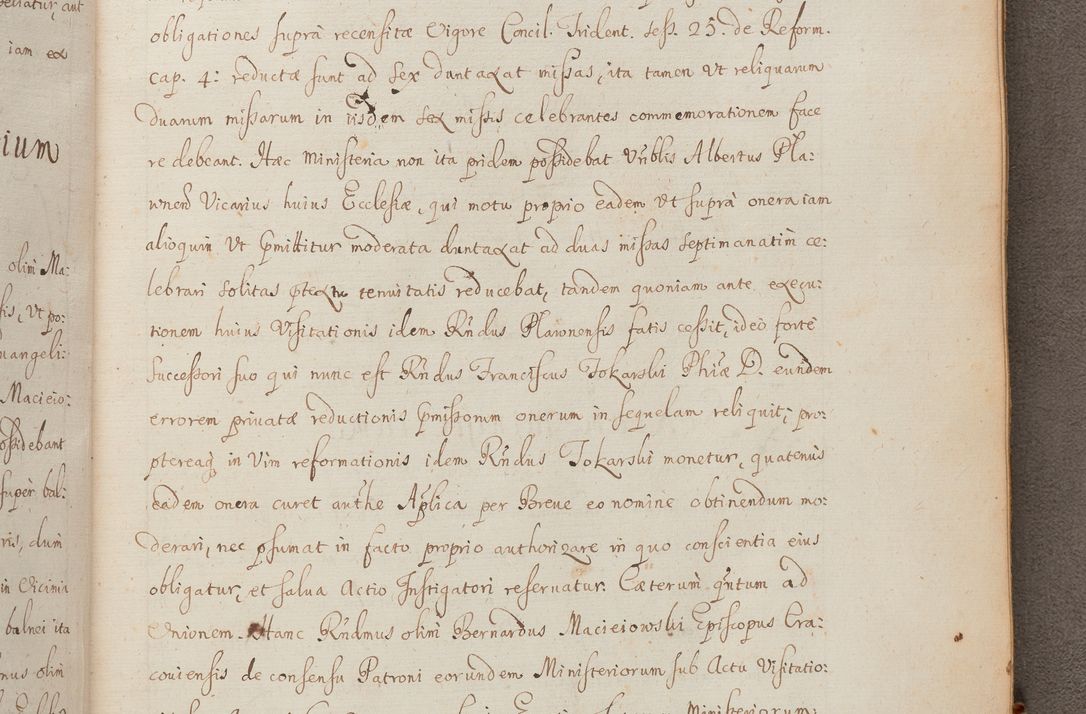 iam ex
ium
olim Ma:
sis, Vt po:
uangeli:
Macieio:
ossidebant
super bal:
ris, dum
in Vicinia
balnei ita
nus olim
obligationes suprà recensitæ Vigore Concil. Trident. sess. 25. de Reform.
cap. 4: reductæ sunt ad sex duntaxat missas, ita tamen Vt reliquarum
duarum missarum in iisdem sex missis celebrantes commemorationem face
re debeant. Hæc Ministeria non ita pridem possidebat Vnblis Albertus Pla:
wnen Vicarius huius Ecclesiæ, qui motu proprio eadem Vt suprà onera iam
alioquin Vt pmittitur moderata duntaxat ad duas missas septimanatim ce:
lebrari solitas ptextu tenuitatis reducebat, tandem quoniam ante execu:
tionem huius Visitationis idem Rndus Plawnensis fatis cessit, ideo fortè
successori suo qui nunc est Rndus Franciscus Tokarski Phiæ D. eundem
errorem priuatæ reductionis pmissorum onerum in sequelam reliquit; pro:
ptereaq in Vim reformationis idem Rndus Tokarski monetur, quatenus
eadem onera curet authe Aplica per Breue eo nomine obtinendum mo:
derari, nec psumat in facto proprio authorizare in quo conscientia eius
obligatur, et salua Actio Instigatori reseruatur. Cæterum qntum ad
Vnionem. Hanc Rndmus olim Bernardus Macieiowski Episcopus Cra:
couiensis de consensu Patroni eorundem Ministeriorum sub Actu Visitatio:
Ministeriorum: